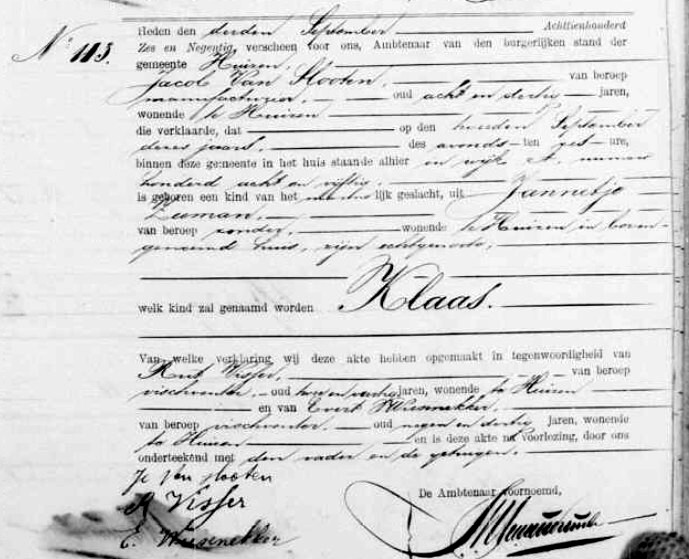 Nº 113.
Heden den derden September Achttienhonderd
Zes en Negentig, verscheen voor ons, Ambtenaar van den burgerlijken stand der
gemeente Huizen,
Jacob Van Slooten, van beroep
manufacturier, oud acht en dertig jaren,
wonende te Huizen
die verklaarde, dat op den tweeden September
dezes jaars, des avonds ten zes ure,
binnen deze gemeente in het huis staande alhier in wijk A. nummer
honderd acht en vijftig,
is geboren een kind van het mannelijk geslacht, uit Jannetje
Zeeman,
van beroep zonder, wonende te Huizen in boven-
genoemd huis, zijn echtgenoote,
welk kind zal genaamd worden Klaas.
Van welke verklaring wij deze akte hebben opgemaakt in tegenwoordigheid van
Visser, van beroep
vischventer, oud twee en veertig jaren, wonende te Huizen
en van Evert Wiesenekker,
van beroep vischventer, oud negen en dertig jaren, wonende
te Huizen en is deze akte na voorlezing, door ons
onderteekend met den vader en de getuigen.
Van Slooten
R Visser
E. Wiesenekker
De Ambtenaar voornoemd,